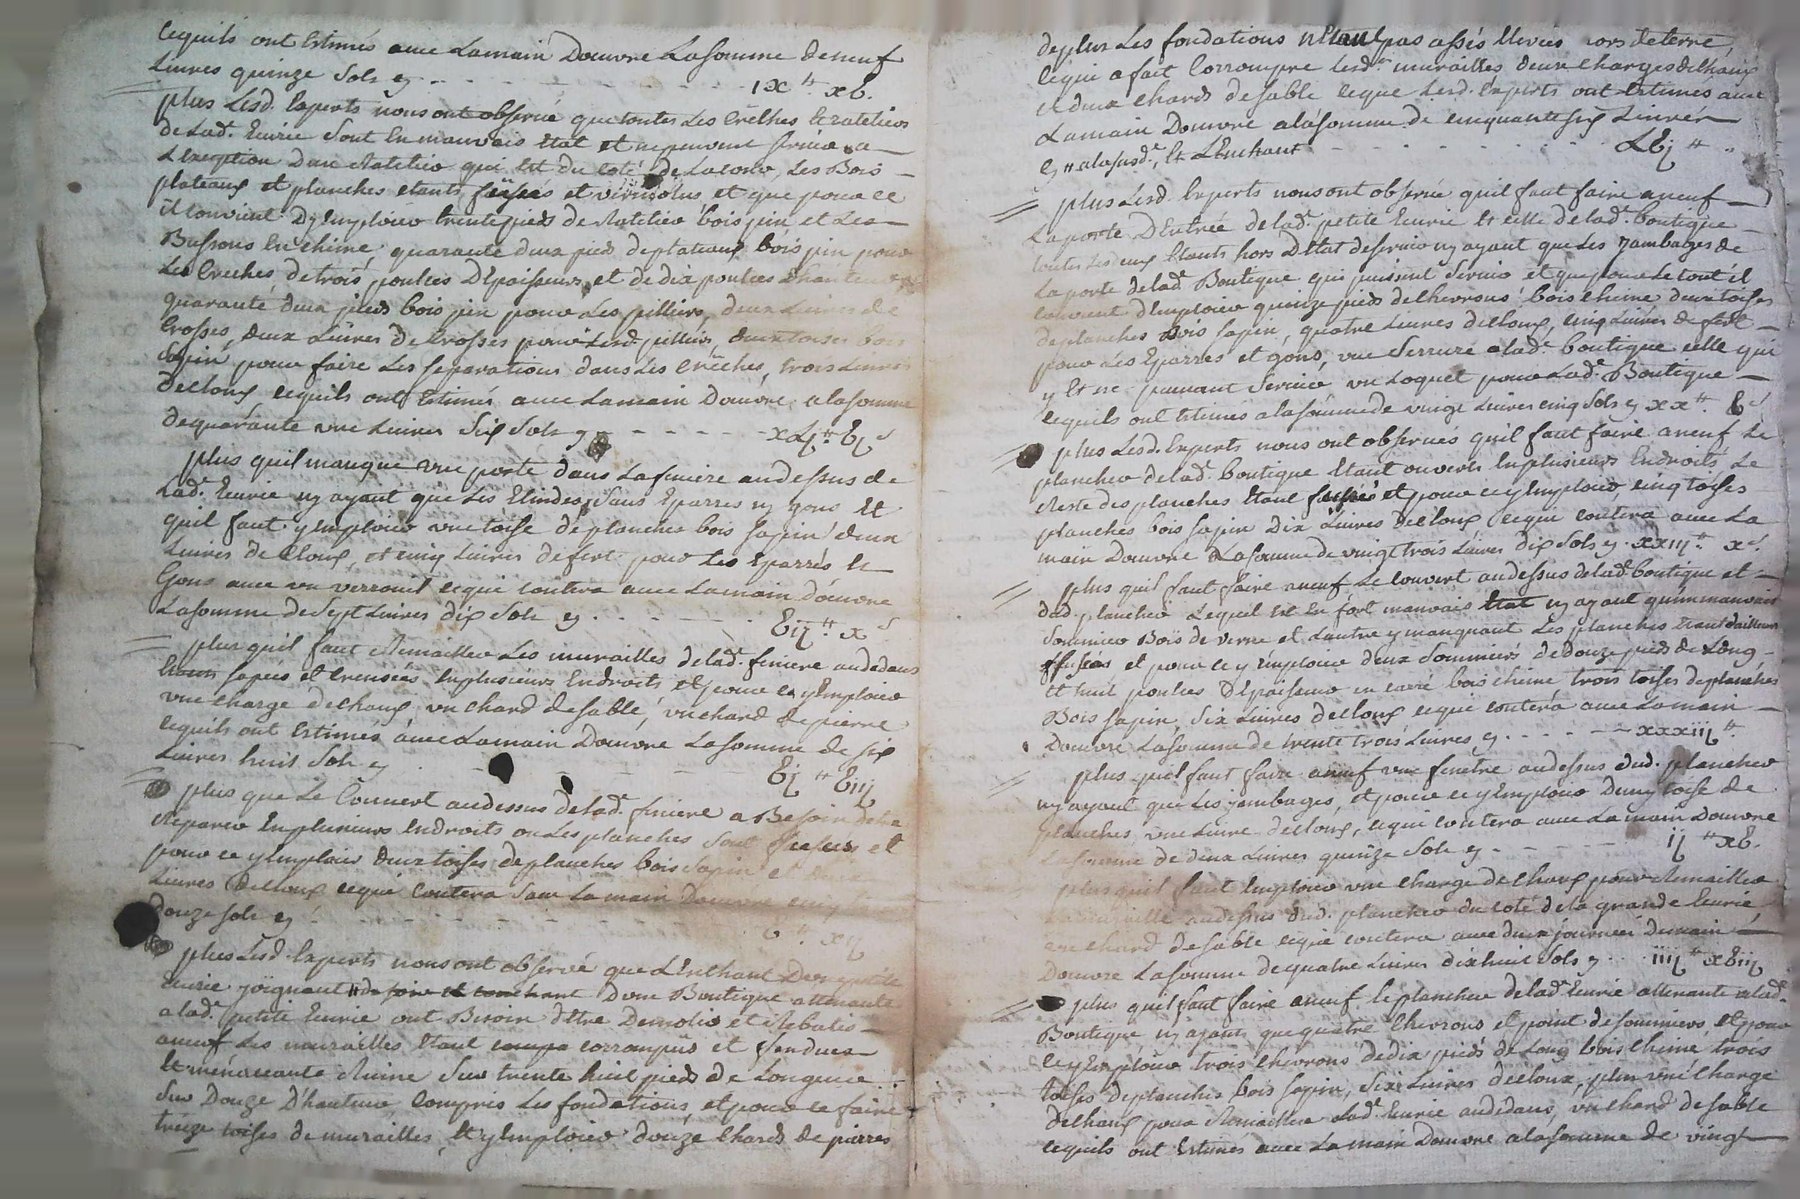 cequils ont Estimés avec Lamain Douvre Lasomme deneuf
Livres quinze Sols cy - - - - - IX ₶ xv.
plus Lesd. Experts nous ont observé quetoutes Les Crêches Et rateliers
de Lad.e Ecurie sont En mauvais Etat et nepeuvent servir a
LExeption Dun Ratelier qui Est du coté De Les Bois
plateaux et planches etants fusées et et que pour ce
il convient Dy Employer trente pieds de Ratelier bois pin et Les
Bussons En chêne, quarante deux pied deplateaux bois pin pour
Les Crêches detrois poulces Dépaisseur et de dix poulces
quarante deux pieds bois pin pour Les pilliers, deux Livres de
Crosses, deux Livres de Crosses pour Lesd. pilliers, deux toises bois
Sapin pour faire Les separations dans Les Crêches, trois Livres
declous cequils ont Estimés avec Lamain Douvre alasomme
dequarante une Livres Six Sols cy - - - - - xLj ₶ vj s
plus quil manque une porte dans Lafeniere audessus de
Lad.e Ecurie ny ayant que Les Elindes, sans Eparres ny gons Et
quil faut y Employer une toise deplanches bois sapin deux
Livres de Cloux, et cinq Livres defert pour Les Eparres Et
Gons avec un verrouil cequi contera avec Lamain douvre
Lasomme de sept Livres dix Sols cy - - - - - vij ₶ x s
plus quil faut Remailler Les murailles delad.e feniere audedans
Etant sapées et creusées Enplusieurs Endroits et pour ce y Employer
une charge dechaux, un chard desable, un chard de pierre
cequils ont Estimés avec Lamain Douvre Lasomme de six
Livres huit Sols cy - - - - vj ₶ viij
plus que Le Couvert audessus delad.e feniere a Besoin detre
Reparer Enplusieurs Endroits ou Les planches sont fusées et
pour ce y Employer deux toises deplanches bois sapin et
Livres declous cequi contera sans La main Douvre cinq
Douze sols cy - - - - v ₶ xij
plus Lesd. Experts nous ont observé que LEnchant petite
Ecurie joignant Dune Boutique attenante
a lad.e petite Ecurie ont Besoin dEtre Demolis et Rebatis
aneuf Les murailles Etant corrompues et fendues
Et menaceante Ruine sur trente huit pieds de Longueur
sur Douze D'hauteur compris Les fondations, et pour ce faire
treize toises de murailles, Et y Employer douze chards de pierres
deplus Les fondations nEtant pas assés Elevées hors deterre,
cequi a fait Corrompre lesd.es murailles deux charges dechaux
et deux chards desable ceque Lesd. Experts ont Estimés avec
Lamain Douvre alasomme de cinquante six Livres
cy alasusd.e, Et LEnchant - - - - - Lvj ₶
plus Lesd. Experts nous ont observé quil faut faire aneuf
La porte DEntrée delad.e petite Ecurie Et celle delad.e boutique
toutes Lesdeux Etants hors DEtat deservir ny ayant que Les Jambages de
La porte delad.e Boutique qui puissent servir et que pour Le tout il
convient dEmployer quinze pieds deChevrons bois chêne deux toises
deplanches bois sapin, quatre Livres declous, cinq Livres de fert
pour Les Eparres et gons, une serrure alad.e boutique celle qui
y Est ne pouvant Servir un Loquet pour Lad.e Boutique
cequils ont Estimés alasomme de vingt Livres cinq Sols cy xx ₶ v s
plus Lesd. Experts nous ont observés quil faut faire aneuf Le
plancher delad.e boutique Etant ouverts Enplusieurs Endroits Le
Reste des planches Etant fusées et pour ce y Employer, cinq toises
planches bois sapin Dix Livres declous cequi contera avec La
main Douvre Lasomme de vingt trois Livres dix Sols cy xxiij ₶ x s
plus quil faut faire aneuf Le couvert audessus delad.e boutique et
dud. plancher Lequel Est En fort mauvais Etat ny ayant quun mauvais
Sommier Bois de verne et Lautre y manquant Les planches Etant dailleurs
fusées et pour ce y Employer deux Sommiers de douze pieds de Long
et huit poulces Dépaisseur en carré bois chêne trois toises deplanches
Bois sapin, six Livres declous cequi contera avec Lamain
Douvre Lasomme de trente trois Livres cy - - - - - xxxiij ₶
plus quil faut faire aneuf une fenetre audessus dud. plancher
ny ayant que Les jambages, et pour ce y Employer Demy toise de
planches, une Livre declous, cequi contera avec La main Douvre
Lasomme de deux Livres quinze Sols cy - - - - ij ₶ xv.
plus quil faut Employer une charge dechaux pour Remailler
La muraille audessus dud. plancher du coté dela grande Ecurie
un chard desable cequi contera avec deux journées Demain
Douvre Lasomme dequatre Livres dixhuit Sols cy iiij ₶ xviij
plus quil faut faire aneuf le plancher delad.e Ecurie attenante alad.e
Boutique ny ayant que quatre Chevrons et point desommiers et pour
ce y Employer trois Chevrons dedix pieds de Long bois chêne trois
toises deplanches bois sapin, six Livres decloux, plus une charge
dechaux pour Remailler Lad.e Ecurie audedans, un chard desable
cequils ont Estimés avec La main Douvre alasomme de vingt